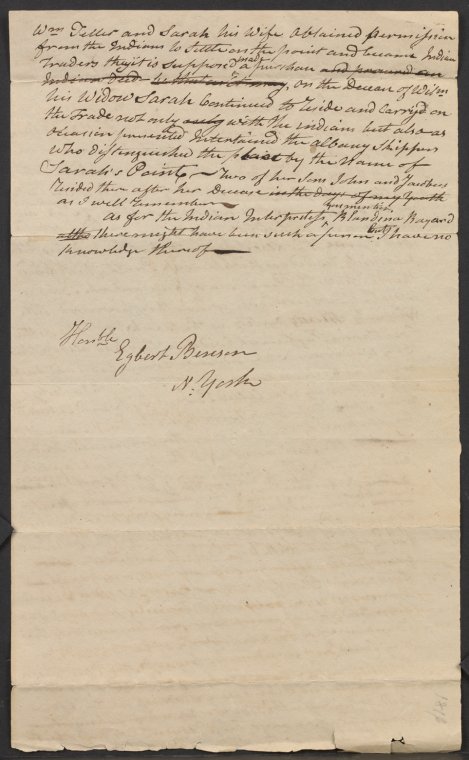 Wm Teller and Sarah his Wife Obtained permission
from the Indians to settle on the point and became Indian
Traders they it is supposed made a purchase and
Indian, on the Decease of Wm
his Widow Sarah Continued to Reside and Carry'd on
the Trade not only only with the indians but also as
Occasion presented Intertained the albany Skippers
who distinguished the place by the Name of
Sarah's Point — Two of her Sons John and Jacobus
Resided there after her Decease in the days of my youth
as I well Remember —
you mention
as for the Indian Interpretess, Blandina Bayard
altho there might have been such a person but I have no
Knowledge thereof —
Honble
Egbert Benson
N. York
1818